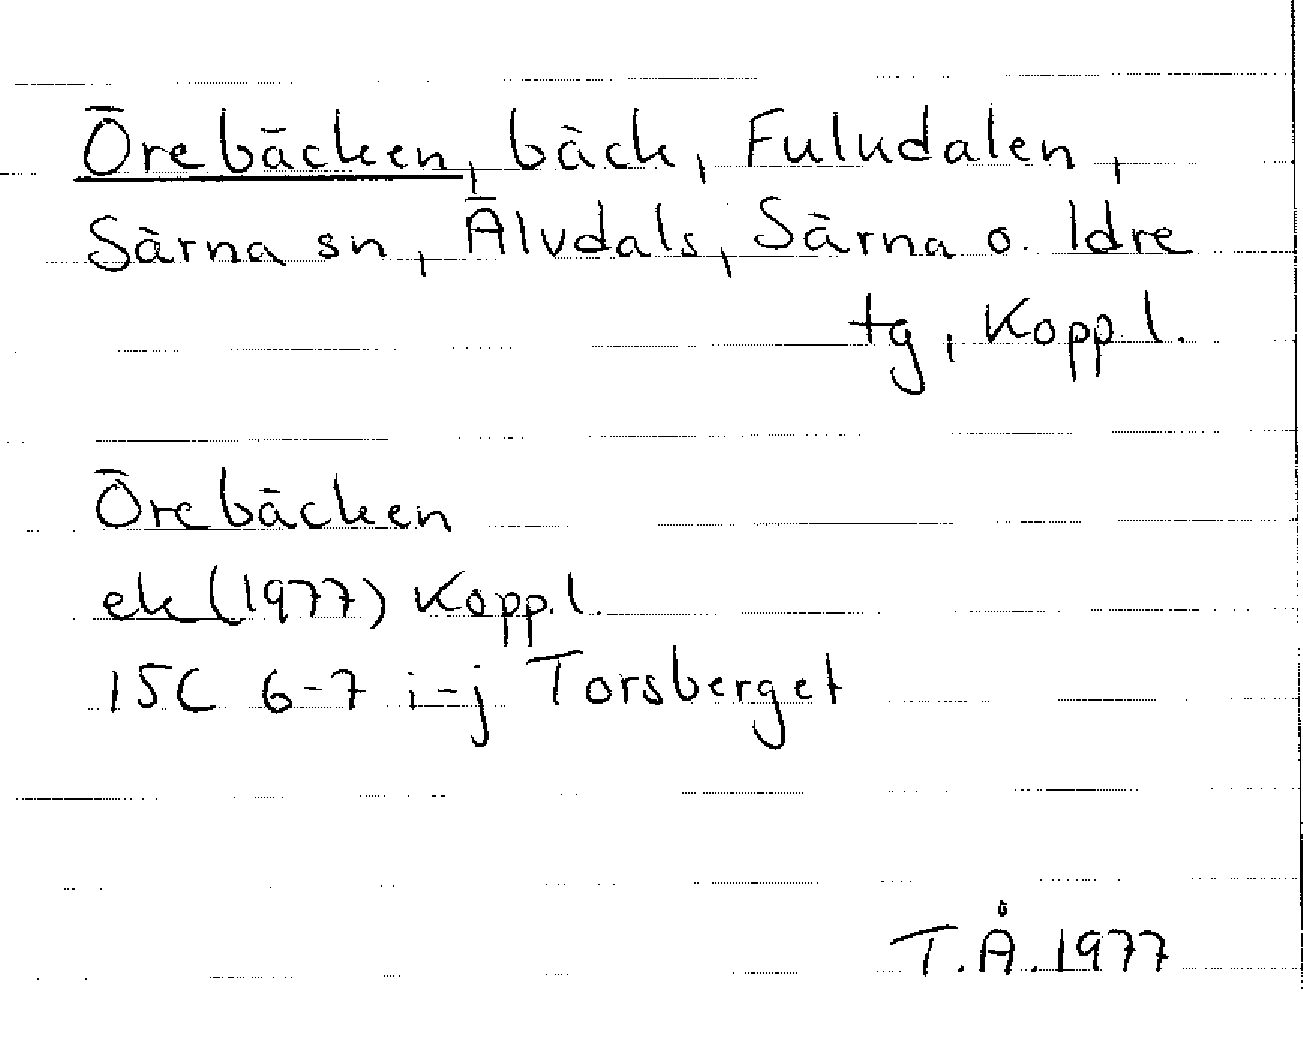 Örebäcken, bäck, Fuludalen,
Särna sn, Älvdals, Särna o. Idre
tg, Kopp.l.
Örebäcken
ek (1977) Kopp.l.
15C 6-7 i-j Torsberget
T.Å. 1977